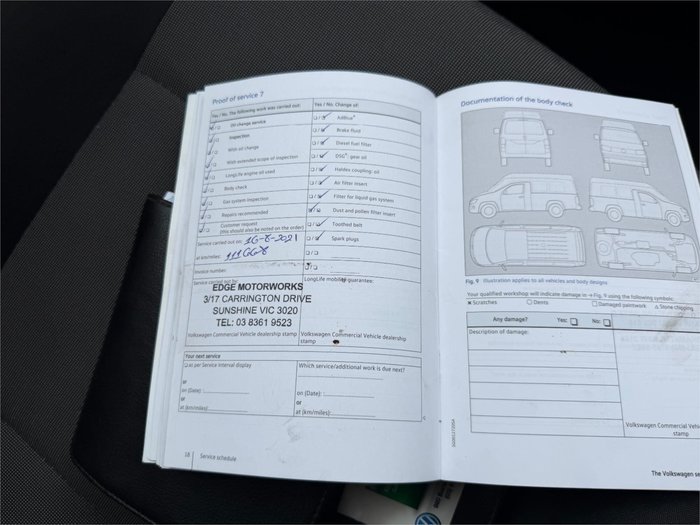 Proof of service 7
Yes / No. The following work was carried out:
Oil change service
Inspection
With oil change
With extended scope of inspection
LongLife engine oil used
Body check
Gas system inspection
Repairs recommended
Customer request
(this should also be noted on the order)
Service carried out on: 16-8-2021
at km/miles:
Invoice number:
Service carried out by:
EDGE MOTORWORKS
3/17 CARRINGTON DRIVE
SUNSHINE VIC 3020
TEL: 03 8361 9523
Volkswagen Commercial Vehicle dealership
stamp
Yes / No. Change of:
AdBlue®
Brake fluid
Diesel fuel filter
DSG®: gear oil
Haldex coupling: oil
Air filter insert
Filter for liquid gas system
Dust and pollen filter insert
Toothed belt
Spark plugs
LongLife mobility guarantee:
Volkswagen Commercial Vehicle dealership
stamp
Your next service
as per Service interval display
or
on (Date):
or
at (km/miles):
Which service/additional work is due next?
on (Date):
or
at (km/miles):
18 Service schedule
Documentation of the body check
Fig. 9 Illustration applies to all vehicles and body designs
Your qualified workshop: will indicate damage in → Fig. 9 using the following symbols:
× Scratches ○ Dents □ Damaged paintwork △ Stone chipping
Any damage? Yes: No:
Description of damage:
Volkswagen Commercial Vehi
stamp
The Volkswagen se